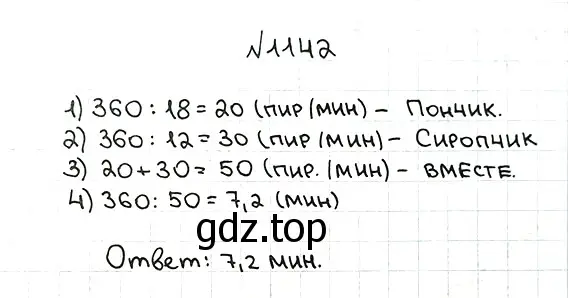 №1142
1) 360 : 18 = 20 (пир/мин) - Пончик.
2) 360 : 12 = 30 (пир/мин) - Сиропчик
3) 20 + 30 = 50 (пир./мин) - вместе.
4) 360 : 50 = 7,2 (мин)
gdz.top
Ответ: 7,2 мин.